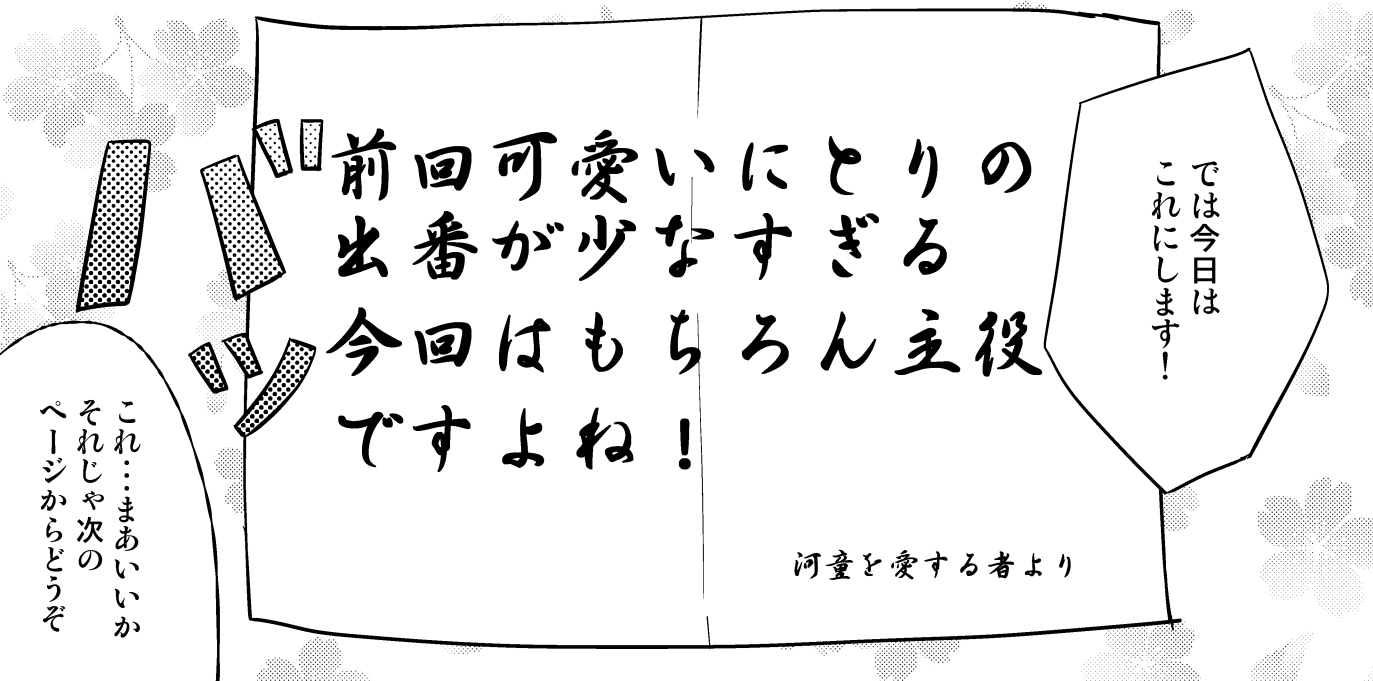 では今日は
これにします！
前回可愛いにとりの
出番が少なすぎる
今回はもちろん主役
ですよね！
河童を愛する者より
バーッ
これ…まあいいか
それじゃ次の
ページからどうぞ